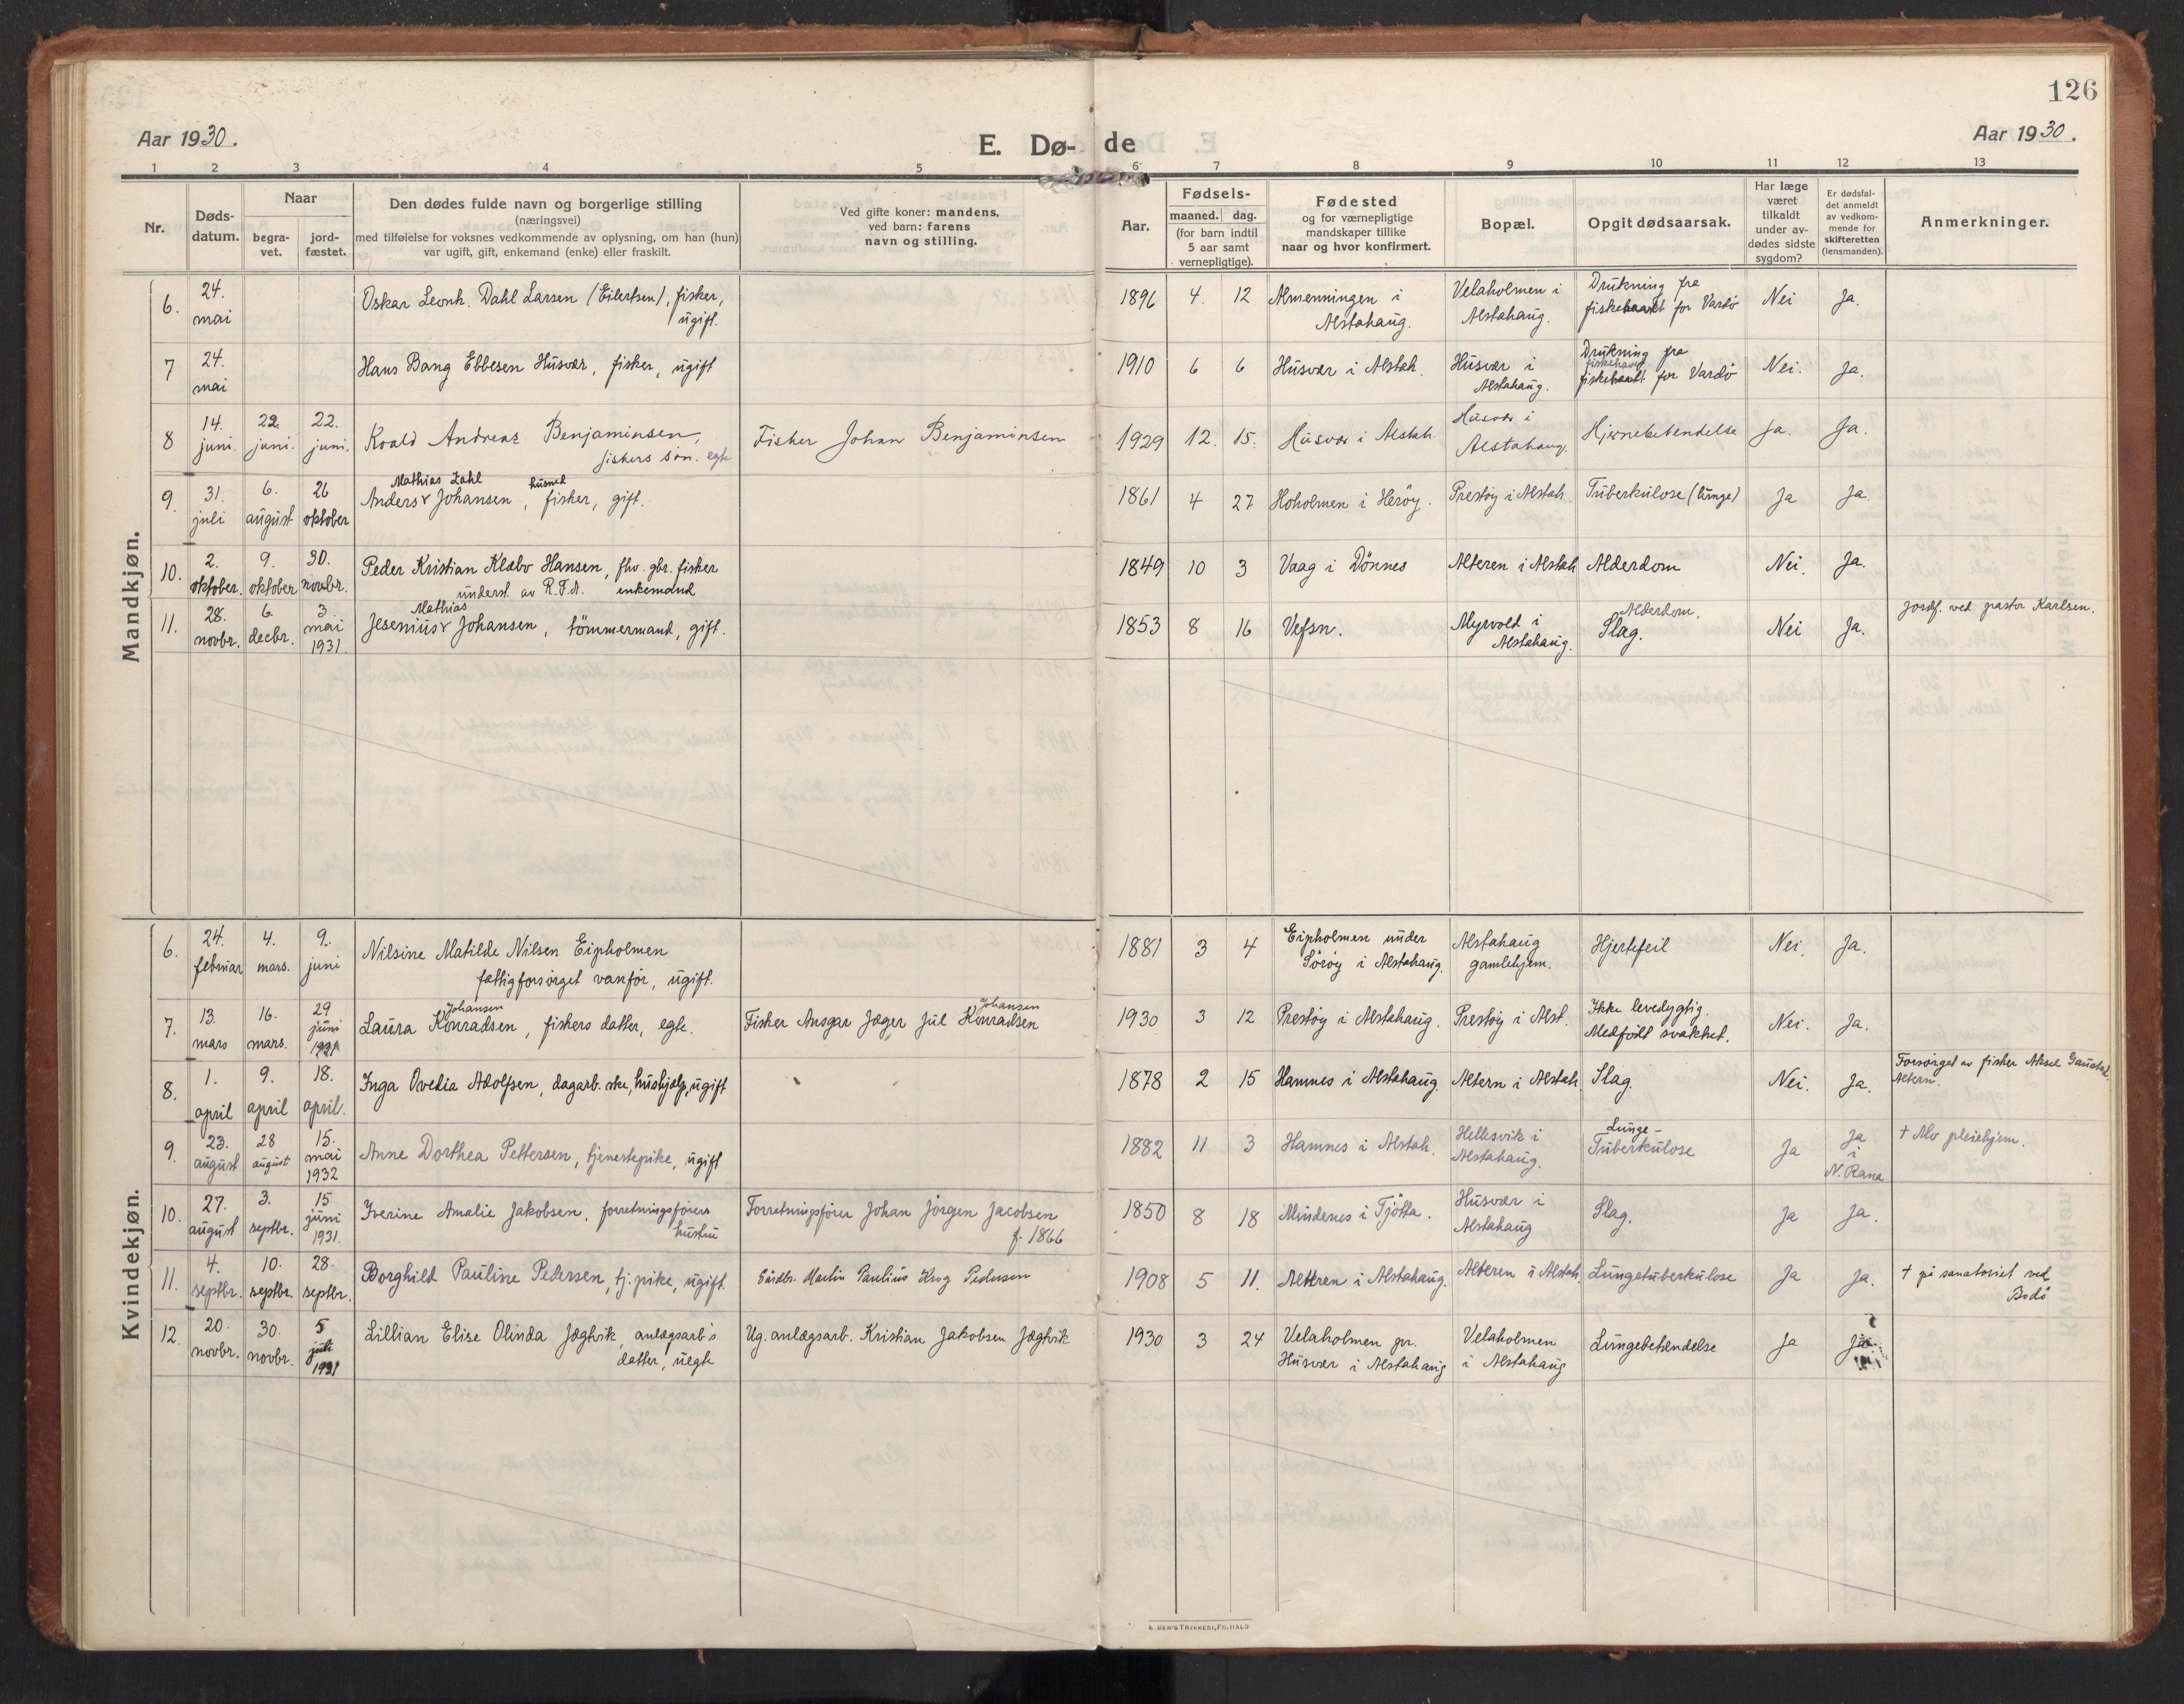 126
Aar 1930.
E. Dø- de
Aar 1930.
1 2 3 4 5 6 7 8 9 10 11 12 13
Nr.
Døds-
datum.
Naar
begra-
vet.
jord-
fæstet.
Den dødes fulde navn og borgerlige stilling
(næringsvei)
med tilføielse for voksnes vedkommende av oplysning, om han (hun)
var ugift, gift, enkemand (enke) eller fraskilt.
Ved gifte koner: mandens,
ved barn: farens
navn og stilling.
Aar.
Fødsels-
maaned. dag.
(for barn indtil
5 aar samt
vernepligtige).
Fødested
og for værnepligtige
mandskaper tillike
naar og hvor konfirmert.
Bopæl.
Opgit dødsaarsak.
Har læge
været
tilkaldt
under av-
dødes sidste
sygdom?
Er dødsfal-
det anmeldt
av vedkom-
mende for
skifteretten
(lensmanden).
Anmerkninger.
Mandkjøn.
6. 24. mai
Oskar Leonh. Dahl Larsen (Eilertsen), fisker,
ugift.
1896 4. 12 Almenningen i
Alstahaug.
Velaholmen i
Alstahaug.
Drukning fra
fiskebaat for Vardö
Nei Ja.
7 24. mai
Hans Bang Ebbesen Husvær, fisker, ugift
1910 6 6 Husvær i Alstah.
Husvær i
Alstahaug.
Drukning fra
fiskebaat for Vardö
Nei. Ja.
8 14. juni. 22. juni. 22. juni.
Roald Andreas Benjaminsen,
fiskers søn. egte
Fisker Johan Benjaminsen
1929 12. 15. Husvær i Alstah.
Husvær i
Alstahaug.
Hjernebetendelse Ja. Ja.
9. 31. juli 6. august 26 oktober
Mathias Zahl husmd
Anders Johansen, fisker, gift.
1861 4 27 Hoholmen i Heröy. Prestöy i Alstah. Tuberkulose (lunge) Ja Ja.
10. 2. oktober. 9. oktober 30. novbr.
Peder Kristian Klæbo Hansen, fhv. gbr. fisker
underst. av R.T.A. enkemand
1849 10 3 Vaag i Dönnes Alteren i Alstah Alderdom Nei. Ja.
11. 28. novbr. 6. decbr. 3. mai 1931.
Mathias
Jesenius Johansen, tömmermand, gift.
1853 8 16 Vefsn.
Myrvold i
Alstahaug.
Alderdom.
Slag.
Nei Ja.
Jordf. ved pastor Karlsen.
Kvindekjøn.
6. 24. februar 4. mars. 9. juni
Nilsine Matilde Nilsen Eipholmen
fattigforsörget vanför, ugift.
1881 3 4 Eipholmen under
Söröy i Alstahaug.
Alstahaug
gamlehjem.
Hjertefeil Nei. Ja.
7. 13. mars 16. mars. 29 juni 1931
Johansen
Laura Konradsen, fiskers datter, egte.
Johansen
Fisker Ansgar Jæger Jul Konradsen
1930 3 12 Prestöy i Alstahaug. Prestöy i Alst.
Ikke levedygtig.
Medfödt svakhet.
Nei. Ja.
8. 1. april 9. april 18. april.
Inga Ovedia Adolfsen, dagarb.ske, hushjelp, ugift
1878 2 15 Hamnes i Alstahaug. Altern i Alstah Slag. Nei. Ja.
Forsörget av fisker Aksel
Altern.
9. 23. august 28 august 15. mai 1932
Anne Dorthea Pettersen, tjenestepike, ugift
1882 11 3 Hamnes i Alstah.
Hellesvik i
Alstahaug.
Lunge-
Tuberkulose
Ja Ja
i
N. Rana
† Mo pleiehjem.
10. 27. august 3. septbr. 15 juni 1931.
Iverine Amalie Jakobsen, forretningsförers
hustru
Forretningsförer Johan Jörgen Jacobsen
f. 1866
1850 8 18 Mindenes i Tjötta.
Husvær i
Alstahaug
Slag. Ja Ja.
11. 4. septbr. 10. septbr. 28. septbr.
Borghild Pauline Pedersen, tj.pike, ugift.
Gårdbr. Martin Paulius Krog Pedersen
1908 5 11. Alteren i Alstahaug. Alteren i Alstah. Lungetuberkulose Ja Ja.
† på sanatoriet ved
Bodö
12. 20. novbr. 30. novbr. 5 juli 1931
Lillian Elise Olinda Jægtvik, anlægsarb's
datter, uegte
Ug. anlægsarb. Kristian Jakobsen Jægtvik
1930 3 24 Velaholmen pr.
Husvær i Alstahaug
Velaholmen
i Alstahaug
Lungebetændelse Ja Ja.
E. SEM'S TRYKKERI, FR.HALD